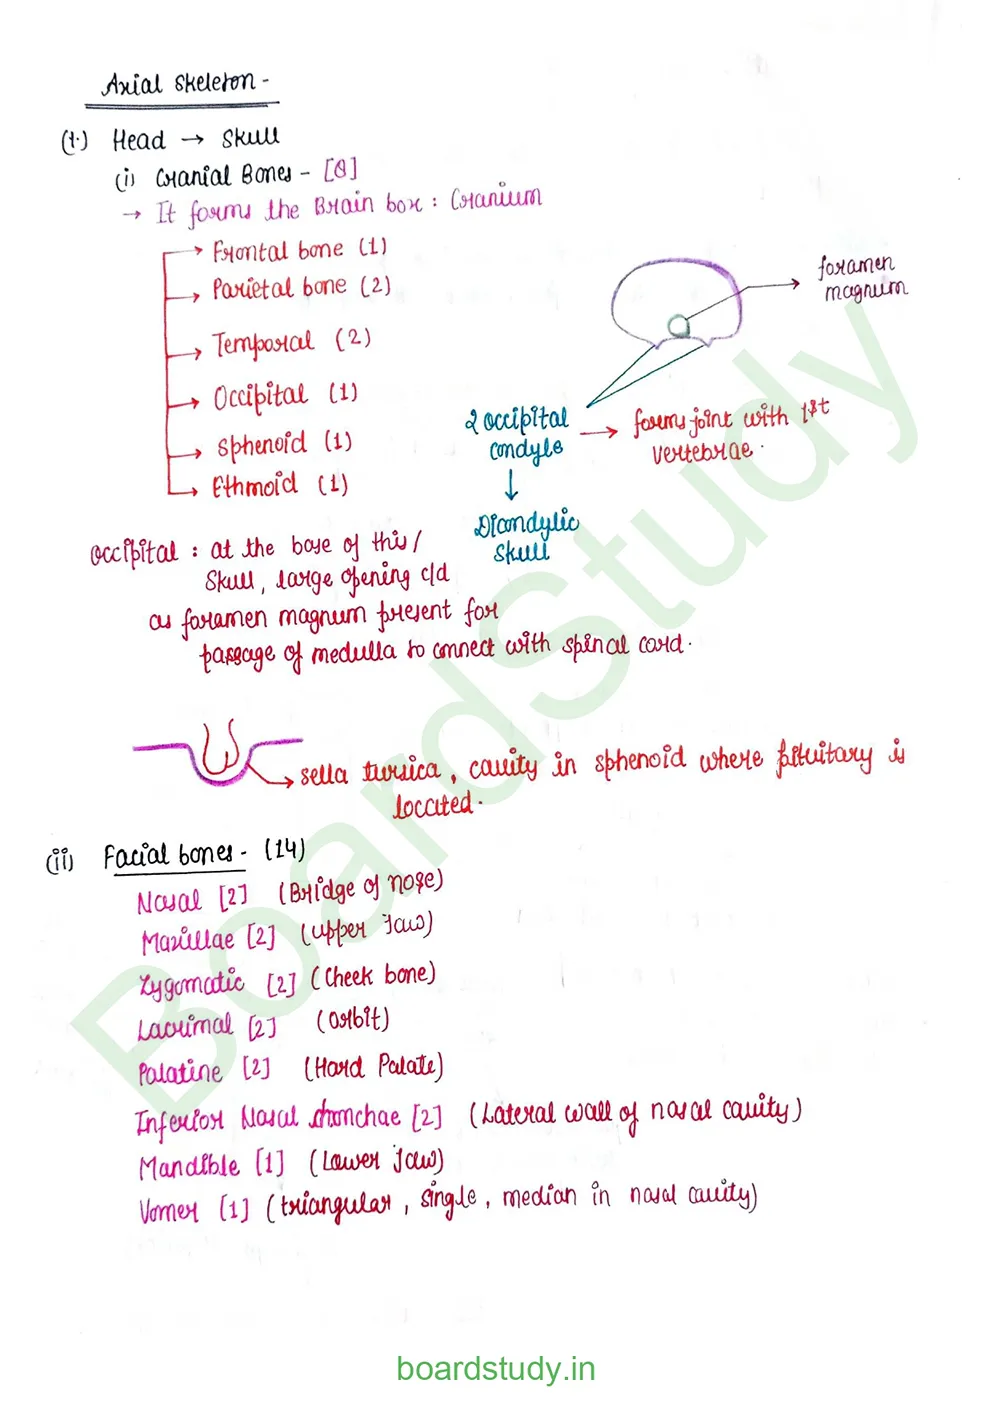 Axial Skeleton -
(1.) Head → Skull
(i) Cranial Bones - [8]
→ It forms the Brain box : Cranium
→ Frontal bone (1)
→ Parietal bone (2)
→ Temporal (2)
→ Occipital (1)
→ Sphenoid (1)
→ Ethmoid (1)
foramen
magnum
2 occipital
condyle
→ forms joint with 1st
vertebrae.
↓
Dicondylic
skull
Occipital : at the base of this/
skull, large opening c/d
as foramen magnum present for
passage of medulla to connect with spinal cord.
→ sella tursica, cavity in sphenoid where pituitary is
located.
(ii) Facial bones - (14)
Nasal [2] (Bridge of nose)
Maxillae [2] (upper jaw)
Zygomatic [2] (Cheek bone)
Lacrimal [2] (orbit)
Palatine [2] (Hard Palate)
Inferior Nasal chonchae [2] (Lateral wall of nasal cavity)
Mandible [1] (Lower jaw)
Vomer [1] (triangular, single, median in nasal cavity)
BoardStudy
boardstudy.in